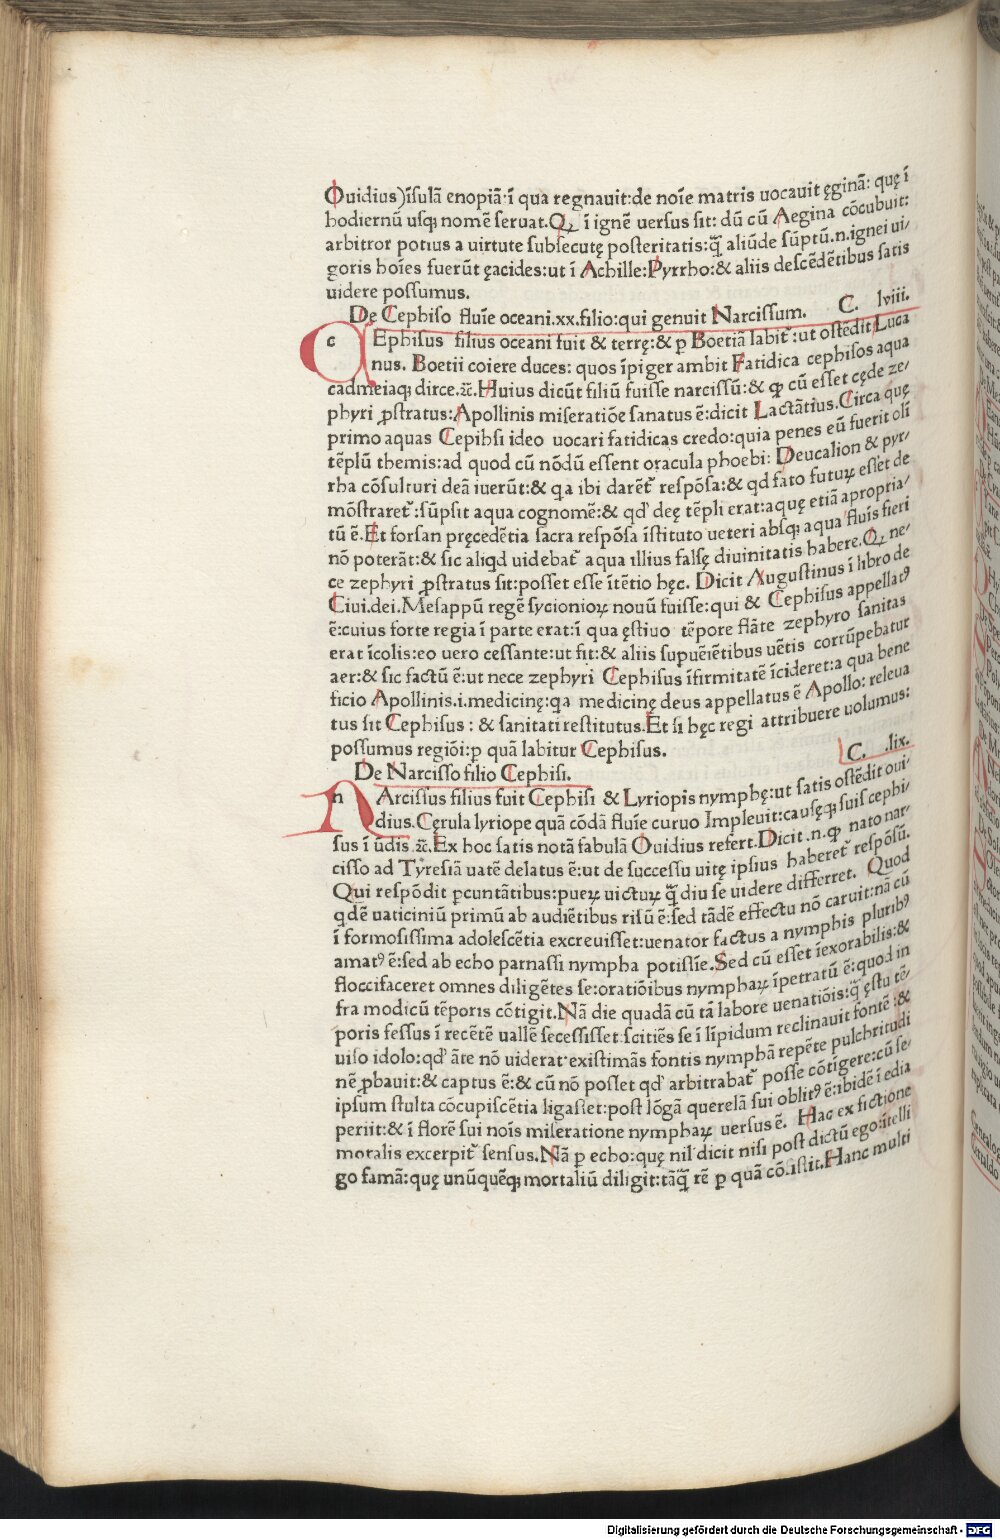 Ouidius)ĩsulã enopiã:ĩ qua regnauit:de noĩe matris uocauit ęginã: quę ĩ
hodiernũ usq; nomẽ seruat.Qꝗ ĩ ignẽ uersus sit: dũ cũ Aegina cõcubuit:
arbitror potius a uirtute subsecutę posteritatis:q̃ aliũde sũptũ.n.ignei ui/
goris hoĩes fuerũt ęacides:ut ĩ Achille:Pyrrho:& aliis descẽdẽtibus satis
uidere possumus.
Dę Cephiso fluĩe oceani.xx.filio:qui genuit Narcissum. C. lviii.
c EPhisus filius oceani fuit & terrę:& ꝑ Boetiã labit᷑:ut ostẽdit Luca
nus. Boetii coiere duces: quos ĩpiger ambit Fatidica cephisos aqua
cadmeiaq; dirce.⁊c̃.Huius dicũt filiũ fuisse narcissũ:& ꝙ cũ esset cęde ze/
phyri ꝓstratus:Apollinis miseratiõe sanatus ẽ:dicit Lactãtius.Circa quę
primo aquas Cepihsi ideo uocari fatidicas credo:quia penes eũ fuerit olĩ
tẽplũ themis:ad quod cũ nõdũ essent oracula phoebi: Deucalion & pyr/
rha cõsulturi deã iuerũt:& qa ibi darẽt᷑ respõsa:& qd fato futuꝝ esset de
mõstraret᷑:sũpsit aqua cognomẽ:& qd' deę tẽpli erat:aquę etiã apropria/
tũ ẽ.Et forsan pręcedẽtia sacra respõsa ĩstituto ueteri absq; aqua fluĩs fieri
nõ poterãt:& sic aliqd uidebat᷑ aqua illius falsę diuinitatis habere.Qꝗ ne/
ce zephyri ꝓstratus sit:posset esse ĩtẽtio hęc. Dicit Augustinus ĩ libro de
Ciui.dei.Mesappũ regẽ sycionioꝝ nouũ fuisse:qui & Cephisus appellatꝰ
ẽ:cuius forte regia ĩ parte erat:ĩ qua ęstiuo tẽpore flãte zephyro sanitas
erat ĩcolis:eo uero cessante:ut fit:& aliis supuẽiẽtibus uẽtis corrũpebatur
aer:& sic factũ ẽ:ut nece zephyri Cephisus ĩfirmitatẽ ĩcideret:a qua bene
ficio Apollinis.i.medicinę:qa medicinę deus appellatus ẽ Apollo: releua
tus sit Cephisus: & sanitati restitutus.Et si hęc regi attribuere uolumus:
possumus regiõi:ꝑ quã labitur Cephisus.
De Narcisso filio Cephisi. C. .lix.
n ARcissus filius fuit Cephisi & Lyriopis nymphę:ut satis ostẽdit oui/
dius.Cęrula lyriope quã cõdã fluĩe curuo Impleuit:causęq; suis cephi/
sus ĩ ũdis.⁊c̃.Ex hoc satis notã fabulã Ouidius refert.Dicit.n.ꝙ nato nar/
cisso ad Tyresiã uatẽ delatus ẽ:ut de successu uitę ipsius haberet᷑ respõsũ.
Qui respõdit ꝑcuntãtibus:pueꝝ uictuꝝ q̃ diu se uidere differret. Quod
qdẽ uaticiniũ primũ ab audiẽtibus risũ ẽ:sed tãdẽ effectu nõ caruit:nã cũ
ĩ formosissima adolescẽtia excreuisset:uenator factus a nymphis pluribꝰ
amatꝰ ẽ:sed ab echo parnassi nympha potissĩe.Sed cũ esset ĩexorabilis:&
floccifaceret omnes diligẽtes se:oratiõibus nymphaꝝ ĩpetratũ ẽ:quod in
fra modicũ tẽporis cõtigit.Nã die quadã cũ tã labore uenatiõis:q̃ ęstu tẽ/
poris fessus ĩ recẽtẽ uallẽ secessisset:sciẽs se ĩ lĩpidum reclinauit fontẽ:&
uiso idolo:qd' ãte nõ uiderat:existimãs fontis nymphã repẽte pulchritudi
nẽ ꝓbauit:& captus ẽ:& cũ nõ posset qd' arbitrabat᷑ posse cõtigere:cũ se/
ipsum stulta cõcupiscẽtia ligasset:post lõgã querelã sui oblitꝰ ẽ:ibidẽ ĩ edia
periit:& ĩ florẽ sui noĩs miseratione nymphaꝝ uersus ẽ. Hac ex fictione
moralis excerpit᷑ sensus.Nã ꝑ echo:quę nil dicit nisi post dictũ ego:ĩtelli
go famã:quę unũquẽq; mortaliũ diligit:tãq̃ rẽ ꝑ quã cõsistit.Hanc multi
Digitalisierung gefördert durch die Deutsche Forschungsgemeinschaft - DFG